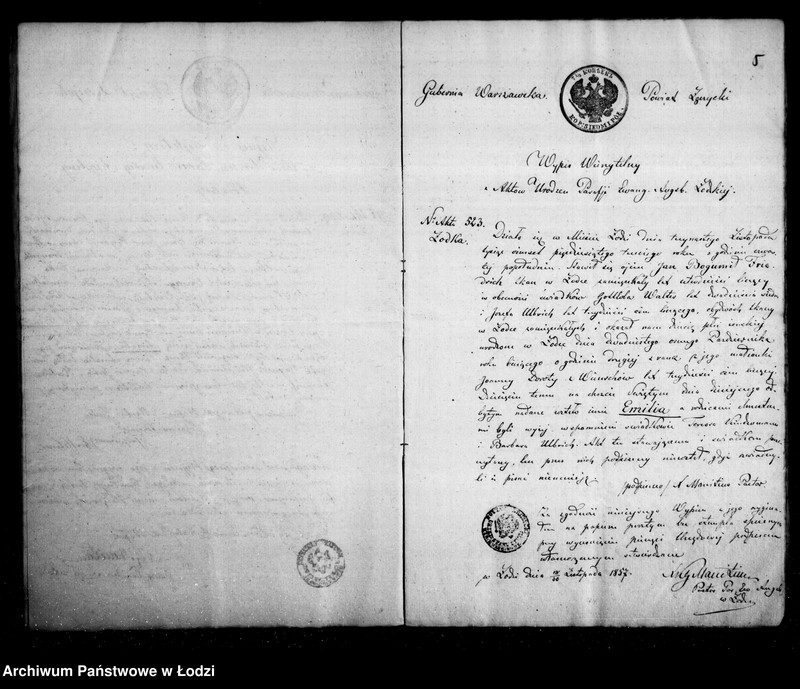 5
7½ KOPIEJEK
KOP. SIEDM I PÓŁ
Gubernia Warszawska. Powiat Łęczycki
Wypis Wierzytelny
z Aktów Urodzeń Parafji Ewang. Augsb. Łódzkiej.
Nr Akt. 523.
Łódka.
Działo się w Mieście Łodzi dnia trzynastego Listopada
tysiąc ośmset pięćdziesiątego trzeciego roku o godzinie czwar
tej popołudniu. Stawił się ojciec Jan Bogumił Frie
drich tkacz w Łódce zamieszkały lat czterdzieści liczący
w obecności świadków Gottloba Walter lat dwadzieścia siedm
i Józefa Ulbrich lat trzydzieści ośm liczącego, obydwóch tkaczy
w Łódce zamieszkałych i okazał nam dziecię płci żeńskiej
urodzone w Łódce dnia dwudziestego ósmego Października
roku bieżącego o godzinie drugiej z rana z jego małżonki
Joanny Doroty z Wünschów lat trzydzieści ośm liczącej
Dziecięciu temu na chrzcie Świętym dnia dzisiejszego od
bytym nadane zostało imie Emilia a rodzicami chrzestne
mi byli wyżej wspomnieni świadkowie Teresa
i Barbara Ulbrich. Akt ten stawającemu i świadkom prze
czytany, lecz przez nich podpisany niezostał, gdyż
li iż pisać nieumieją.
/podpisano/ Pastor
Za zgodność niniejszego Wypisu z jego orygina
łem na papierze
przy wyciśnięciu pieczęci Urzędowej podpisem
własnoręcznym stwierdzam
w Łodzi dnia Listopada 1857.
Pastor Par. Ew. Augsb.
w Łodzi
Archiwum Państwowe w Łodzi